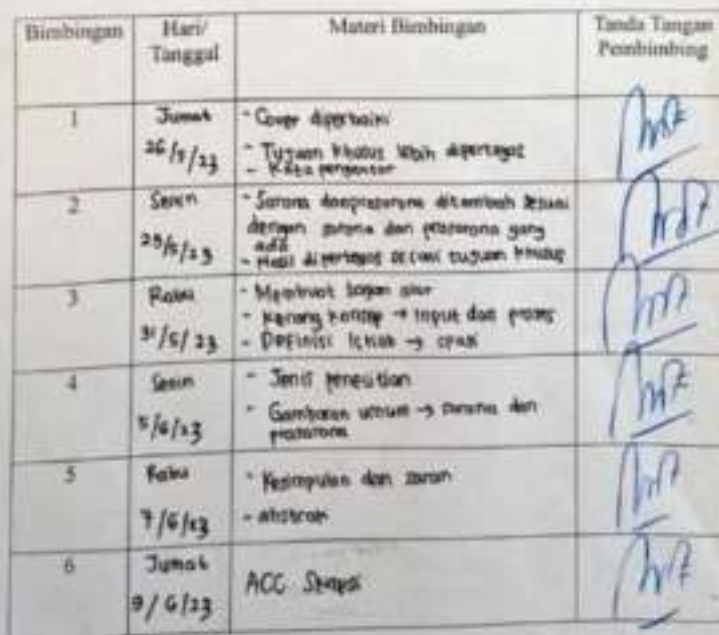 Bimbingan Hari/ Tanggal Materi Bimbingan Tanda Tangan Pembimbing
1 Jumat 26/5/23
- Cover diperbaiki
- Tujuan khusus lebih dipertegas
- Kata pengantar
2 Senin 29/5/23
- Sarana dan prasarana ditambah sesuai
dengan sarana dan prasarana yang
ada
- Hasil dipertegas sesuai tujuan khusus
3 Rabu 31/5/23
- Membuat bagan alur
- Kerang konsep → input dan proses
- Definisi →
4 Senin 5/6/23
- Jenis penelitian
- Gambaran umum → sarana dan
prasarana
5 Rabu 7/6/23
- Kesimpulan dan saran
- abstrak
6 Jumat 9/6/23
ACC Skripsi